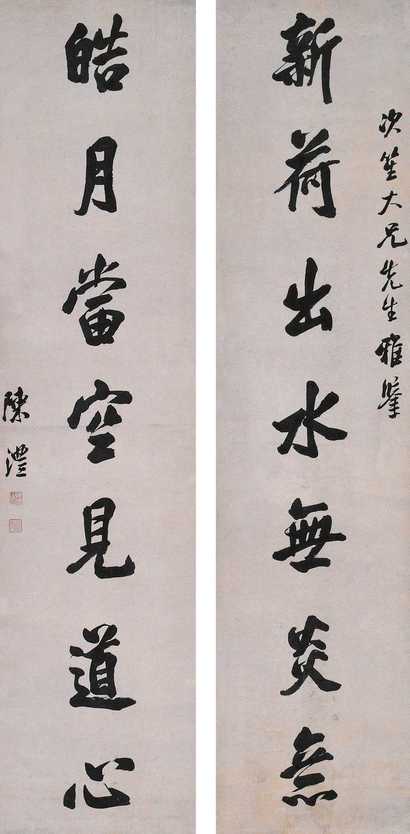 次笙大兄先生雅
新荷出水無炎炁
皓月當空見道心
陳澧